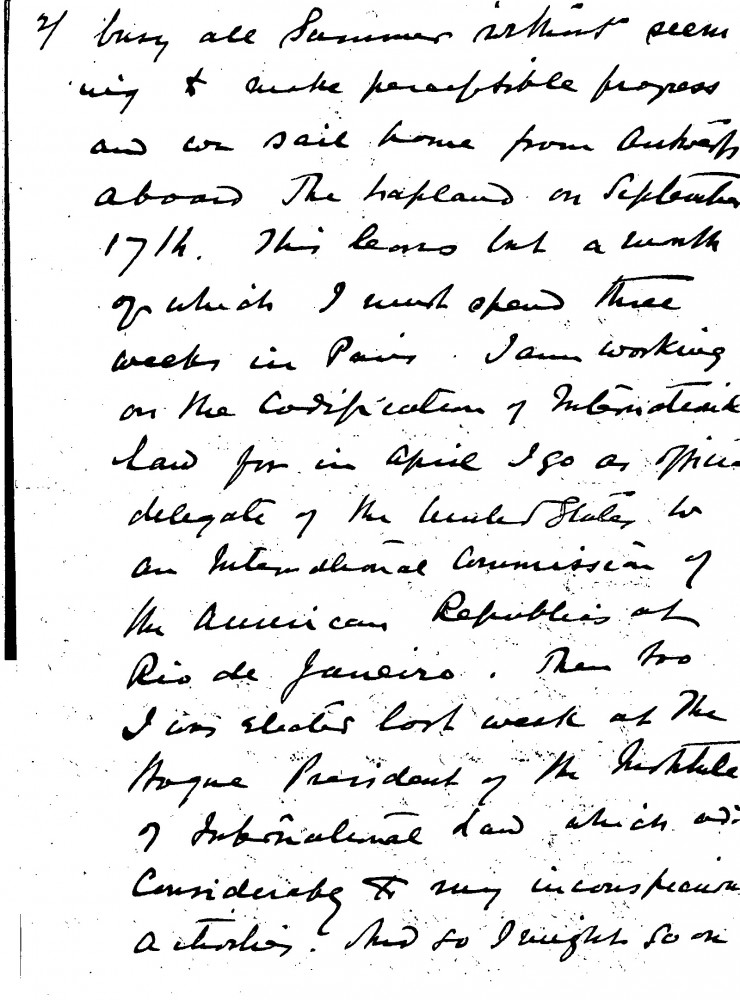 2/ busy all Summer without seem
ing to make perceptible progress
and we sail home from Antwerp
aboard The Lapland on September
17th. This leaves but a month
of which I must spend three
weeks in Paris. I am working
on the Codification of Internationa
Law for in April I go as officia
delegate of the United States to
an International Commission of
the American Republics at
Rio de Janeiro. Then too
I was elected last week at The
Hague President of the Institute
of International Law which add
Considerably to my inconspicuous
activities. And so I might so on